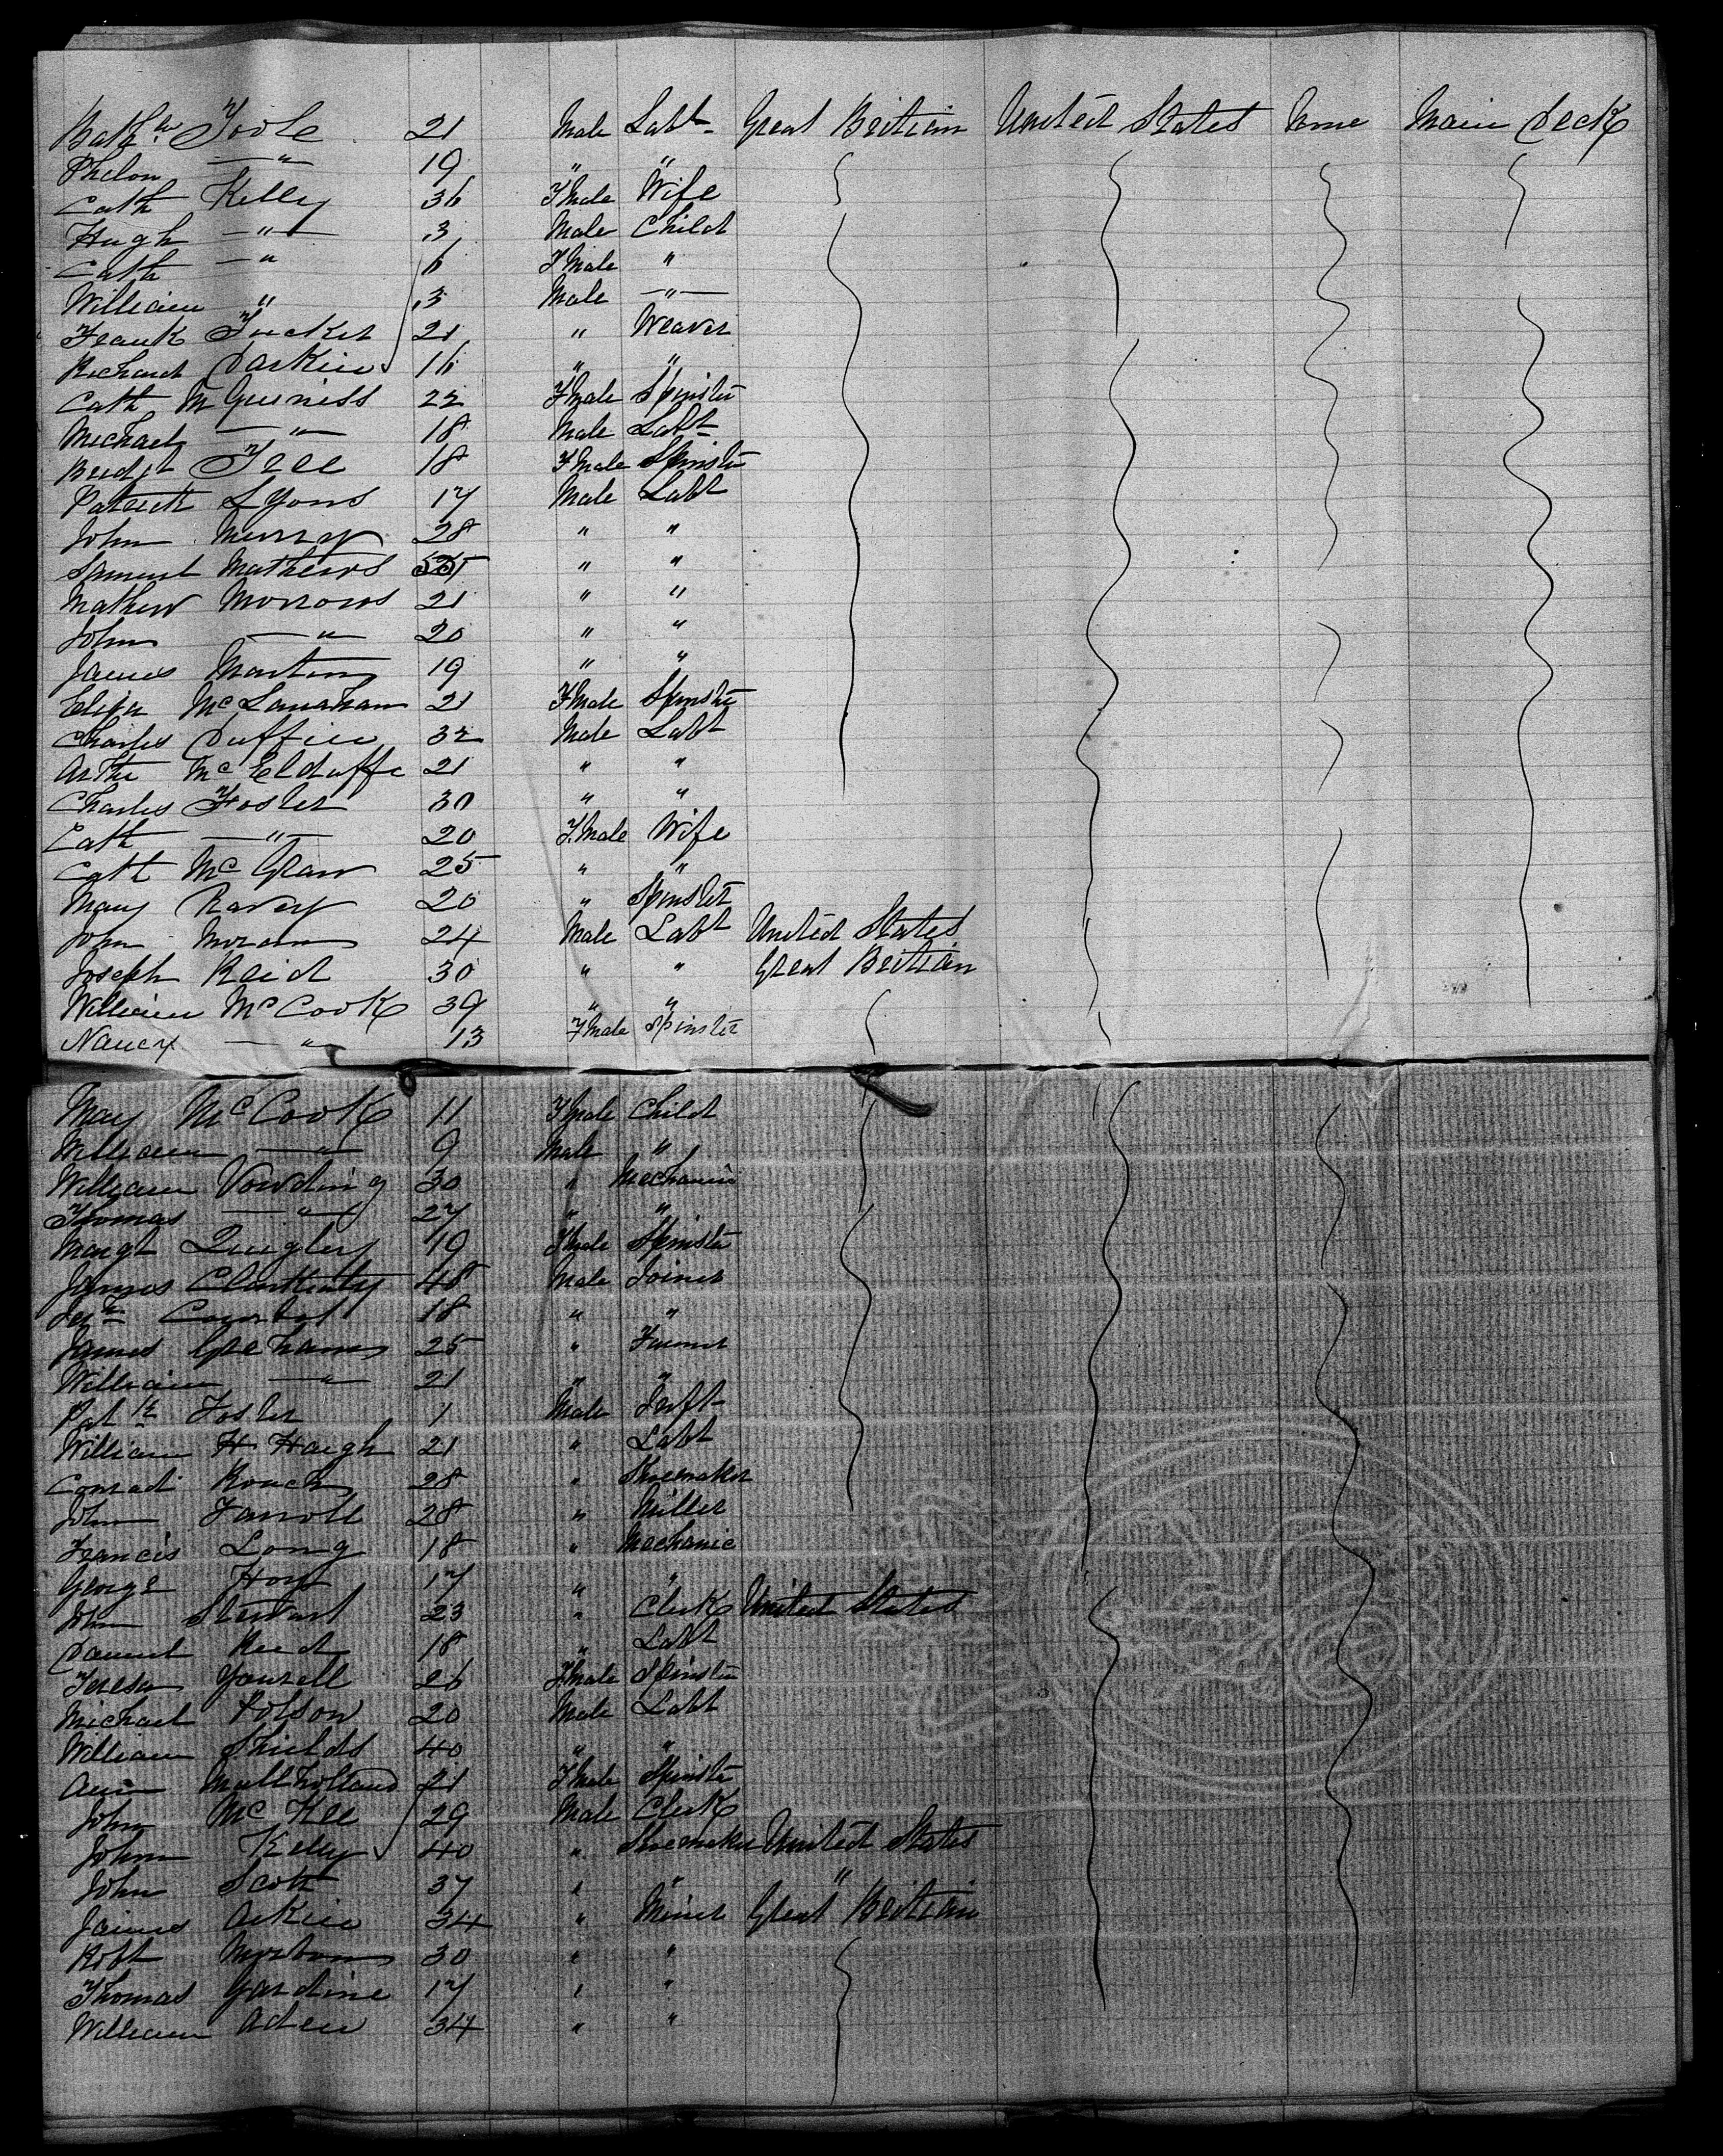 Bathw Toole 21 Male Labt Great Britian United States None Main Deck
Phelom —"— 19 " "
Cath Kelly 36 Fmale Wife
Hugh —"— 3 Male Child
Cath —" 6 Fmale "
William " 3 Male —"—
Frank Tucker 21 " Weaver
Richard Darkin 16 " "
Cath McGuniss 22 Fmale Spinster
Michael —"— 18 Male Labt
Bridgt Free 18 Fmale Spinster
Patrick Lyons 17 Male Labt
John Murray 28 " "
Samuel Mathews " "
Mathew Morrows 21 " "
John —"— 20 " "
James Martin 19 " "
Eliza McLanaham 21 Fmale Spinster
Charles Duffin 32 Male Labt
Arthr McElduffe 21 " "
Charles Foster 30 " "
Cath —"— 20 Fmale Wife
Cath McGraw 25 " "
Mary Ravey 20 " Spinster
John Moran 24 Male Labt United States
Joseph Reid 30 " " Great Britian
William McCook 39 " "
Nancy —"— 13 Fmale Spinster
May McCook 11 Fmale Child
William —"— 9 Male "
William Vowding 30 " Mechanic
Thomas —"— 27 " "
Margt Quigley 19 Fmale Spinster
James 48 Male Joiner
18 " "
James Graham 25 " Farmer
William —"— 21 " "
Patk Foster 1 Male Inft
William H Haigh 21 " Labt
Conrad Rouch 28 " Shoemaker
John Farroll 28 " Miller
Francis Long 18 " Mechanic
George Hoy 17 " "
John Stewart 23 " Clerk United States
Daniel Reed 18 " Labt
Teresa Yourell 26 Fmale Spinster
Michael Polson 20 Male Labt
William Shields 40 " "
Ann Mullholland 21 Fmale Spinster
John McKee 29 Male Clerk
John Kelly 40 " Shoemaker United States
John Scott 37 " " "
James Arkin 34 " Miner Great Britian
Robt 30 " "
Thomas Yardine 17 " "
William Aden 34 " "